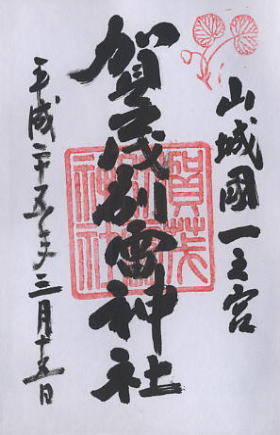 山城國一之宮
賀茂別雷神社
平成二十五年三月十五日
賀茂
別雷
神社